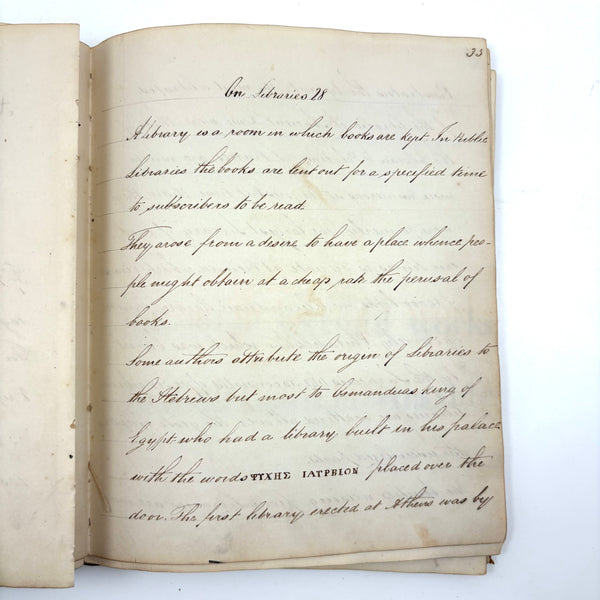 33
On Libraries 28
A library is a room in which books are kept. In Public
Libraries the books are lent out for a specified time
to subscribers to be read
They arose from a desire to have a place whence peo-
ple might obtain at a cheap rate the perusal of
books.
Some authors attribute the origin of Libraries to
the Hebrews but most to Osmanduas king of
Egypt who had a library built in his palace
with the words ΨΥΧΗΣ ΙΑΤΡΕΙΟΝ placed over the
door. The first library erected at Athens was by